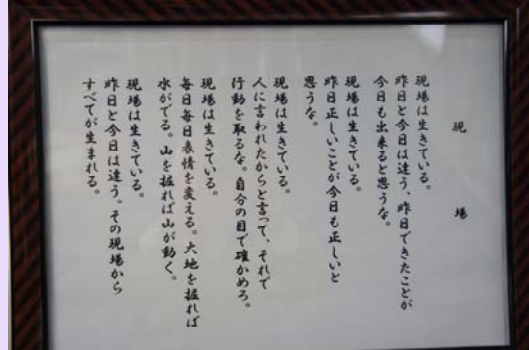 現場
現場は生きている。
昨日と今日は違う、昨日できたことが
今日も出来ると思うな。
現場は生きている。
昨日正しいことが今日も正しいと
思うな。
現場は生きている。
人に言われたからと言って、それで
行動を取るな。自分の目で確かめろ。
現場は生きている。
毎日毎日表情を変える。大地を掘れば
水がでる。山を掘れば山が動く。
現場は生きている。
昨日と今日は違う。その現場から
すべてが生まれる。